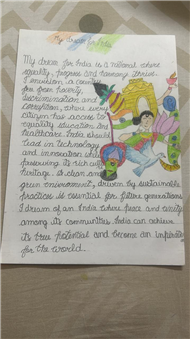 My dream for India
My dream for India is a national where
equality, progress and harmony thrives.
I envision a country
free from poverty,
discrimination and
corruption, where every
citizen has access to
equality education and
healthcare. India should
lead in technology
and innovation while
preserving its rich
heritage. A clean and
green environment, driven by sustainable
practices is essential for future generations
I dream of an India where peace and unity
among its communities. India can achieve
its true potential and become an
for the world.